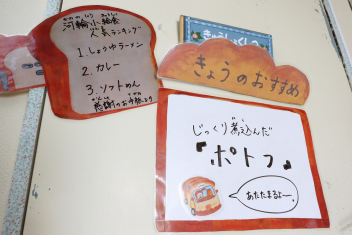 河輪小 給食
人気ランキング
1. しょうゆラーメン
2. カレー
3. ソフトめん
感謝のお手紙より
きょうのおすすめ
じっくり煮込んだ
『ポトフ』
あたたまるよー。